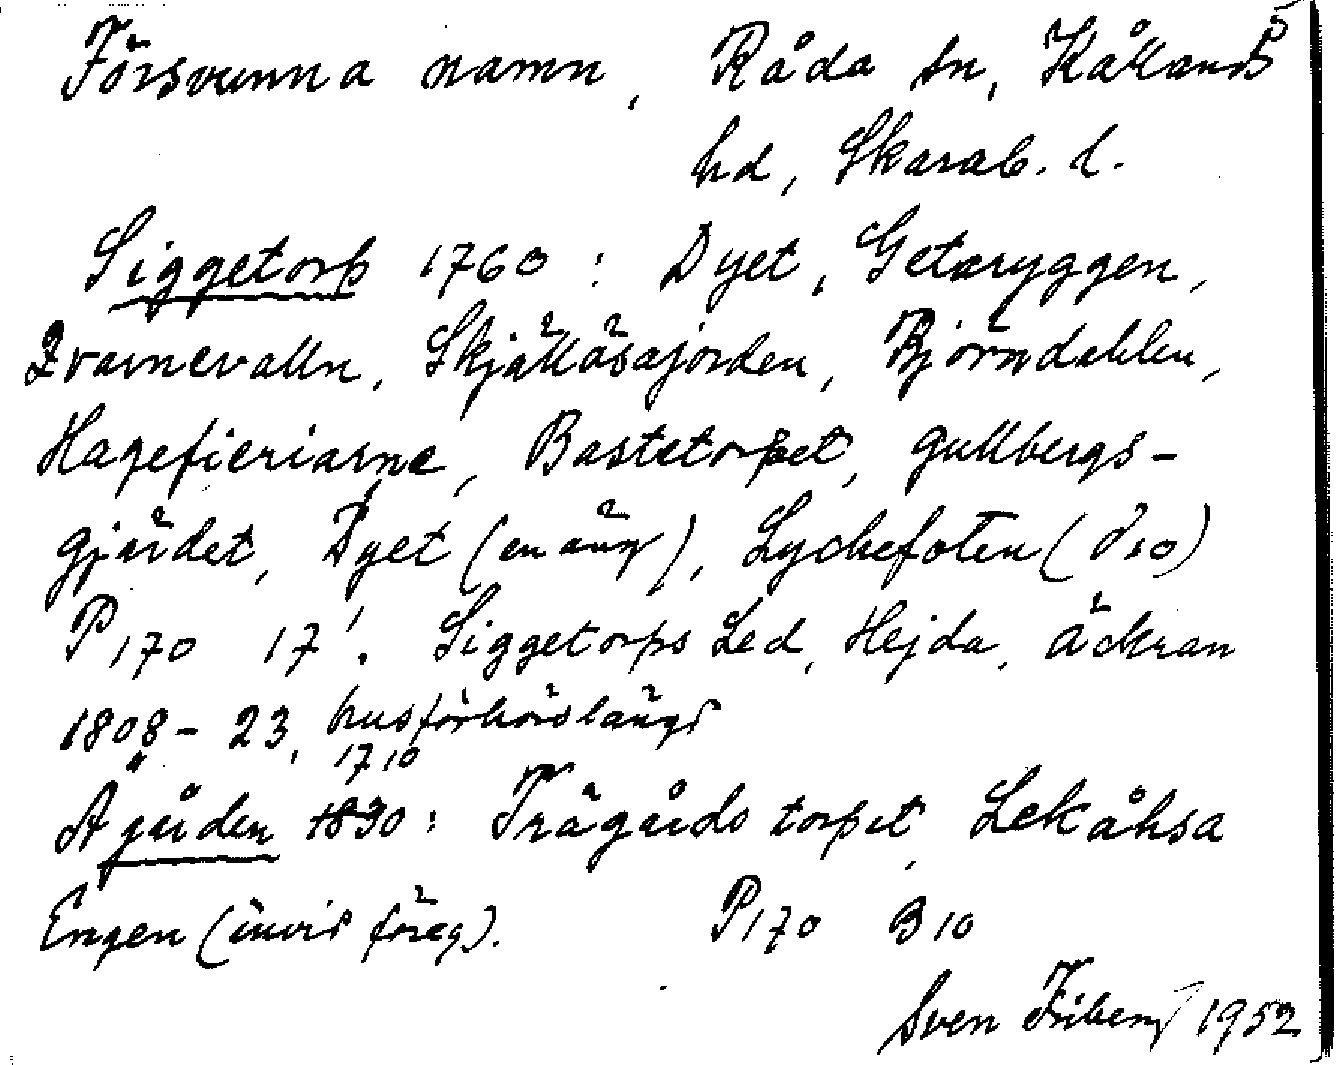 Försvunna namn, Råda sn, Kållands
hd, Skarab. l.
Siggetorp 1760: Dyet, Getaryggen,
Qvarnevalln, Skjällåsajorden, Björndahlen,
Hagefierianne, Bastetorpet, gullbergs-
gjärdet, Dyet (en äng), Lyckefoten (d:o)
P170 17'. Siggetorps Led, Hejda, äckran
1808-23, husförhörslängd
Ågården 1710 1830: Trägårds torpet, Lekåhsa
Engen (invid föreg). P170 B10
Sven Friberg 1952